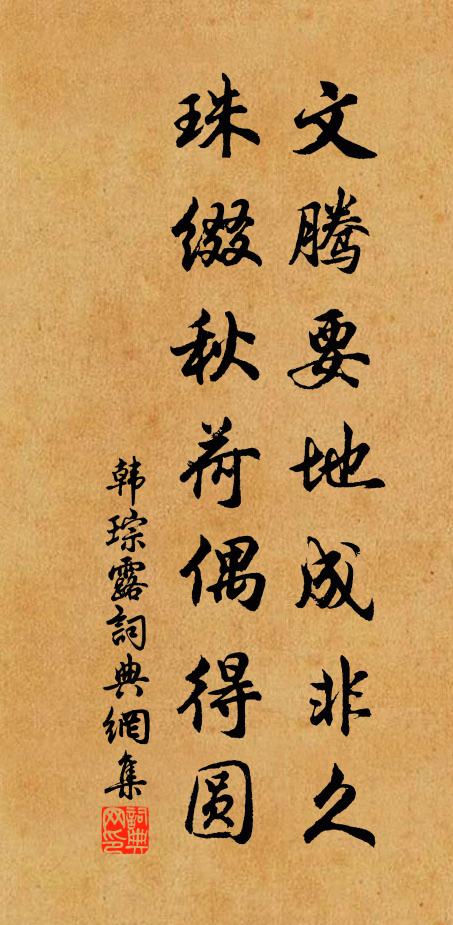 文腾要地成非久
珠缀秋荷偶得圆
韩琮露詞典網集
詞典网印